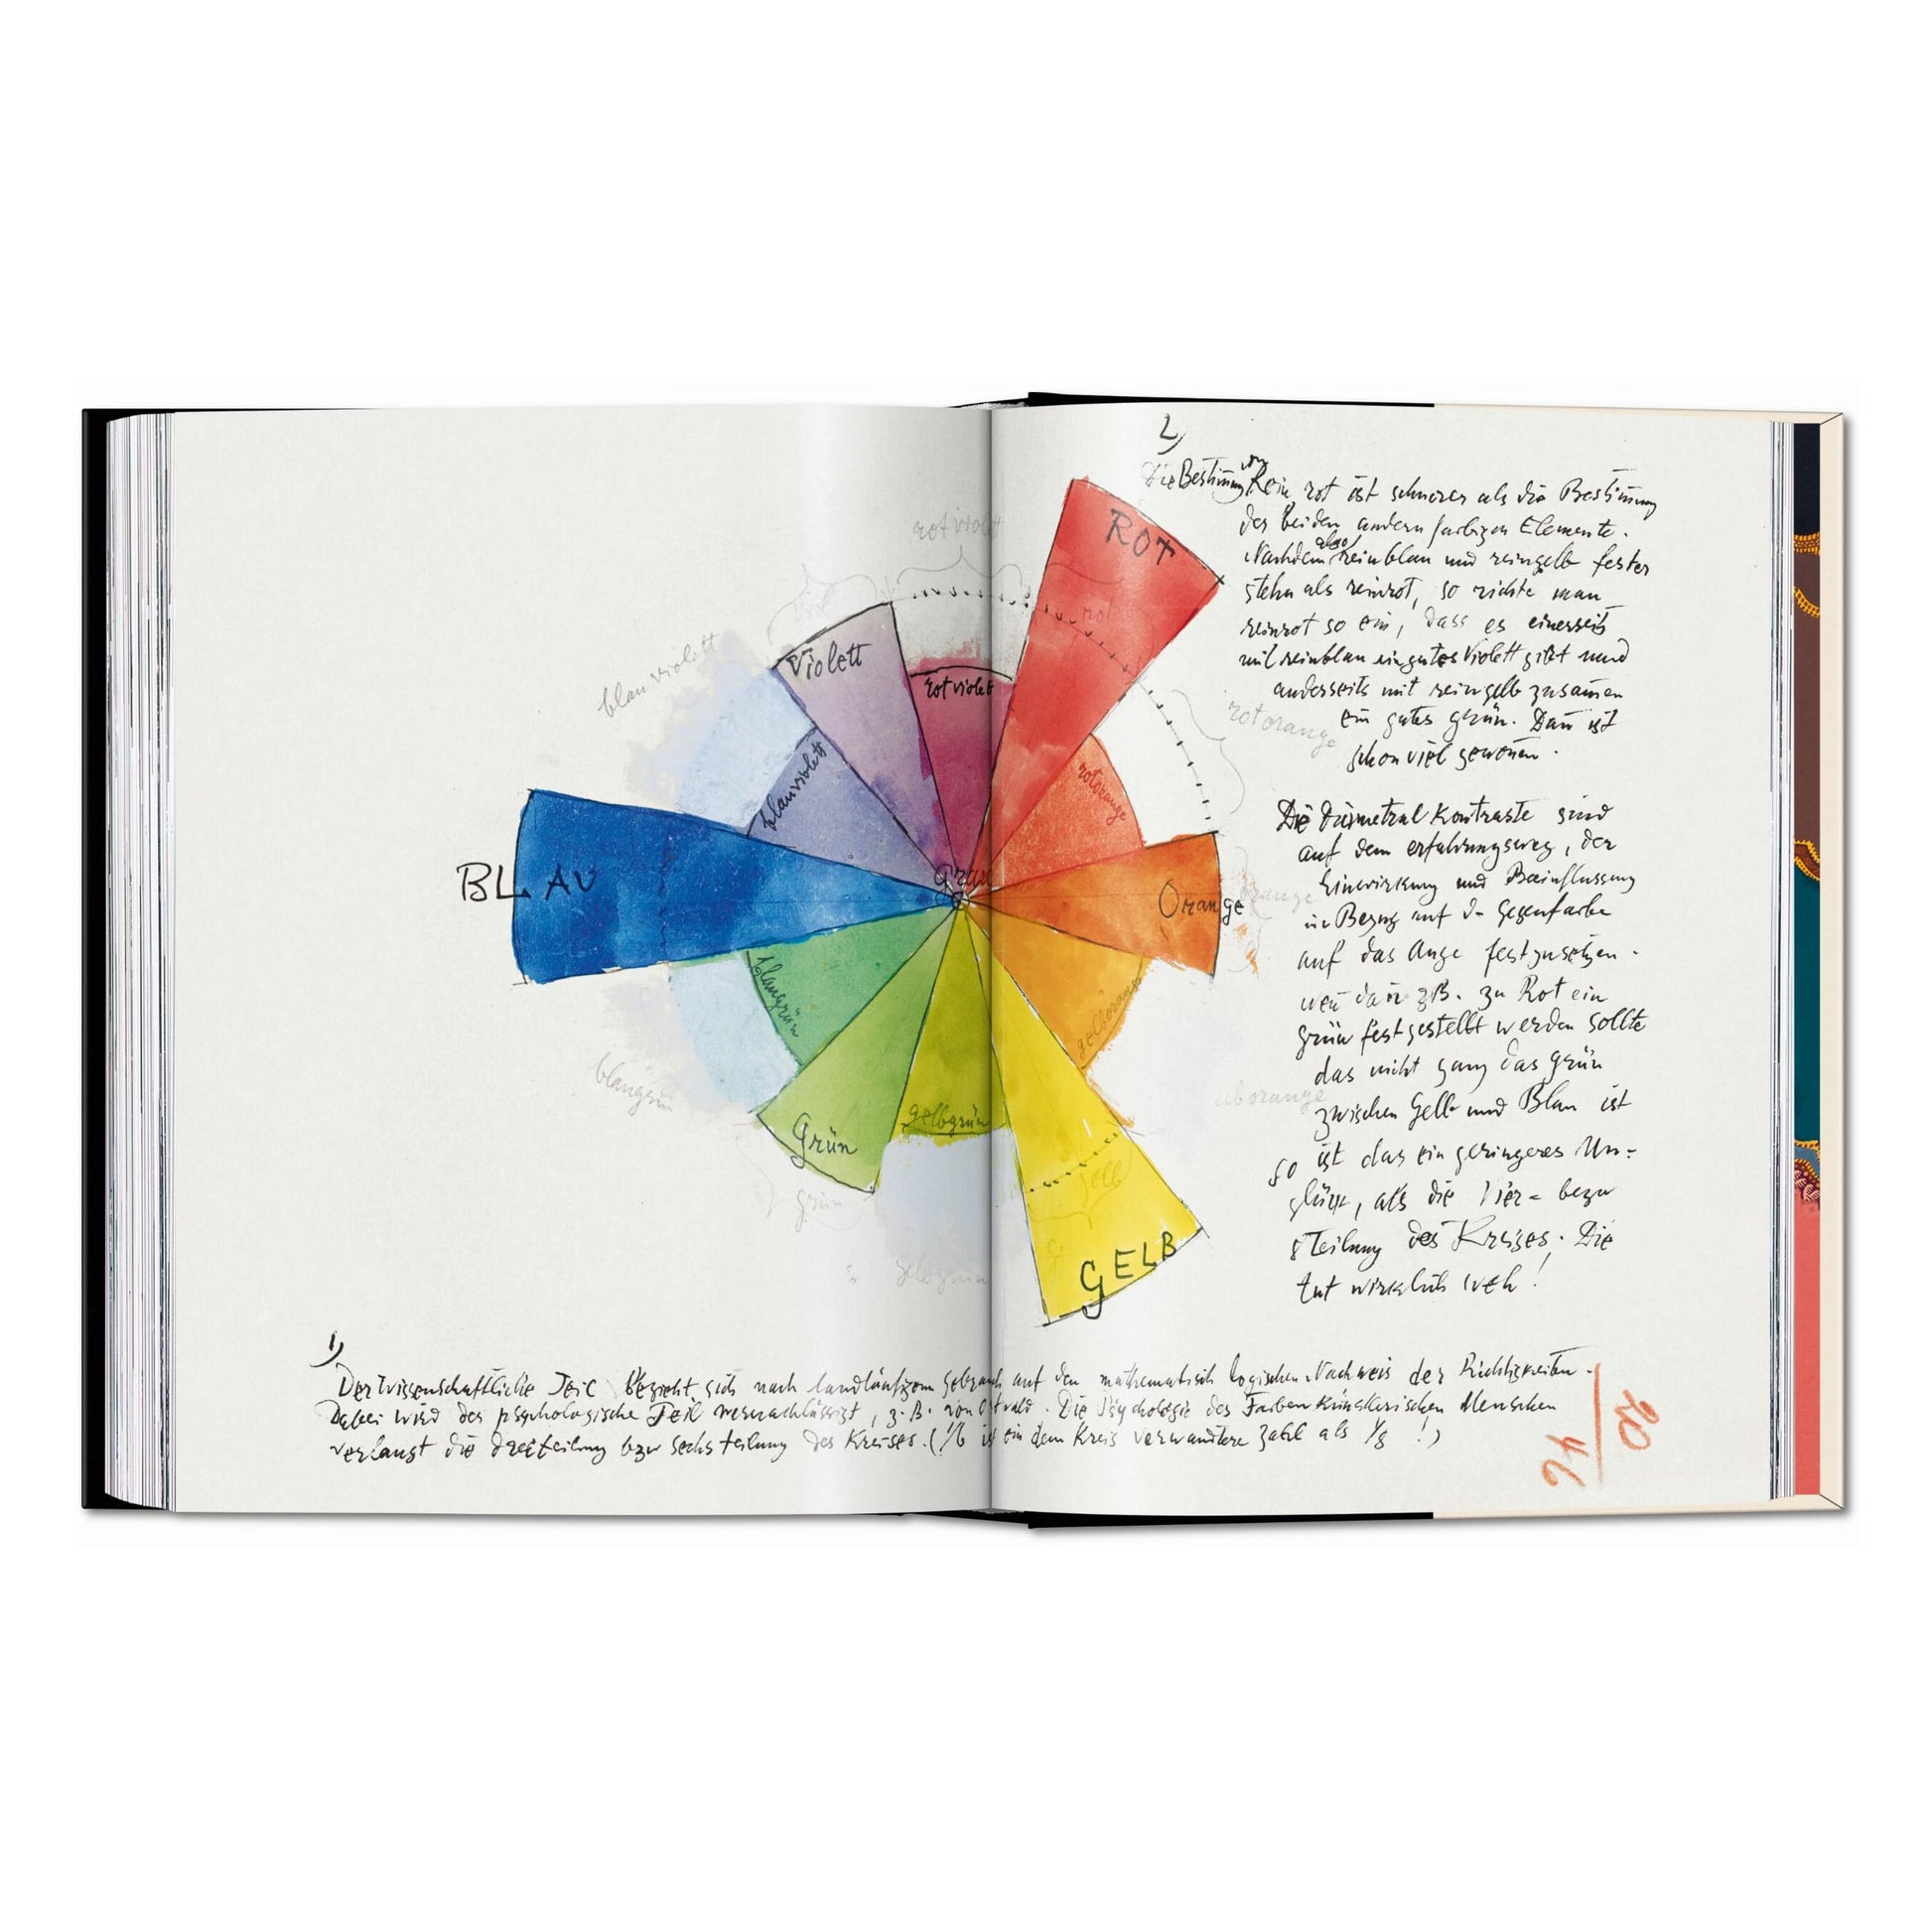 2)
Die Bestimung von Rein rot ist schwerer als die Bestimung
der beiden andern farbigen Elemente.
Nachdem also reinblau und reingelb fester
stehn als reinrot, so richte man
reinrot so ein, dass es einerseits
mit reinblau ein gutes Violett gibt und
anderseits mit reingelb zusamen
ein gutes grün. Dan ist
schon viel gewonen.
Die diametral Kontraste sind
auf dem erfahrungsweg, der
Einwirkung und Beinflussung
in Bezug auf d- Gegenfarbe
auf das Auge festzusetzen.
wen dan z.B. zu Rot ein
grün festgestellt werden sollte
das nicht ganz das grün
zwischen Gelb und Blau ist
so ist das ein geringeres Un-
glück, als die Vier- bezw
8 teilung des Kreises. Die
tut wirklich weh!
rotviolett
ROT
rot
blauviolett
Violett
rotviolet
rotorange
blauviolett
rotorange
BLAU
Grau
Orange
orange
blaugrün
gelborange
blaugrün
Grün
gelbgrün
gelb
grün
GELB
gelbgrün
1)
Der Wissenschaftliche Teil bezieht sich nach landläufigem gebrauch auf den mathematisch logischen Nachweis der Richtigkeiten.
Dabei wird der psychologische Teil vernachlässigt, z.B. von Ostwald. Die Psychologie des Farbenkünstlerischen Menschen
verlangt die dreiteilung bezw sechsteilung des Kreises. (1/6 ist ein dem Kreis verwandtere Zahl als 1/8 !)
20
46